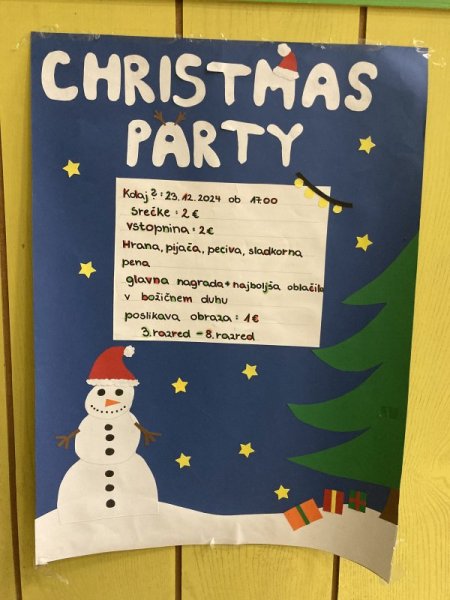 CHRISTMAS
PARTY
Kdaj?: 23.12.2024 ob 17.00
srečke: 2€
vstopnina: 2€
Hrana, pijača, peciva, sladkorna
pena
glavna nagrada + najboljša oblačila
v božičnem duhu
poslikava obraza: 1€
3. razred - 8. razred